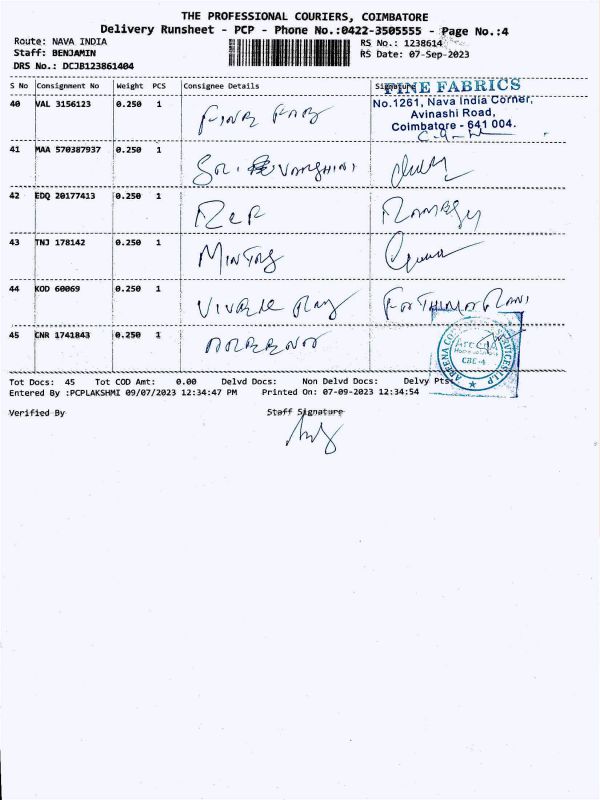 THE PROFESSIONAL COURIERS, COIMBATORE
Delivery Runsheet - PCP - Phone No.:0422-3505555 - Page No.:4
Route: NAVA INDIA RS No.: 1238614
Staff: BENJAMIN RS Date: 07-Sep-2023
DRS No.: DCJB123861404
S No Consignment No Weight PCS Consignee Details Signature
FINE FABRICS
No.1261, Nava India Corner,
Avinashi Road,
Coimbatore - 641 004.
40 VAL 3156123 0.250 1 FINE FAB
41 MAA 570387937 0.250 1 SRI VARSHINI
42 EDQ 20177413 0.250 1 Ramesh
43 TNJ 178142 0.250 1
44 KOD 60069 0.250 1 VIVEK RAJ FATHIMA RANI
45 CNR 1741843 0.250 1
AREENA SERVICES LLP
Areena
CBE-4
Tot Docs: 45 Tot COD Amt: 0.00 Delvd Docs: Non Delvd Docs: Delvy Pts:
Entered By :PCPLAKSHMI 09/07/2023 12:34:47 PM Printed On: 07-09-2023 12:34:54
Verified By Staff Signature